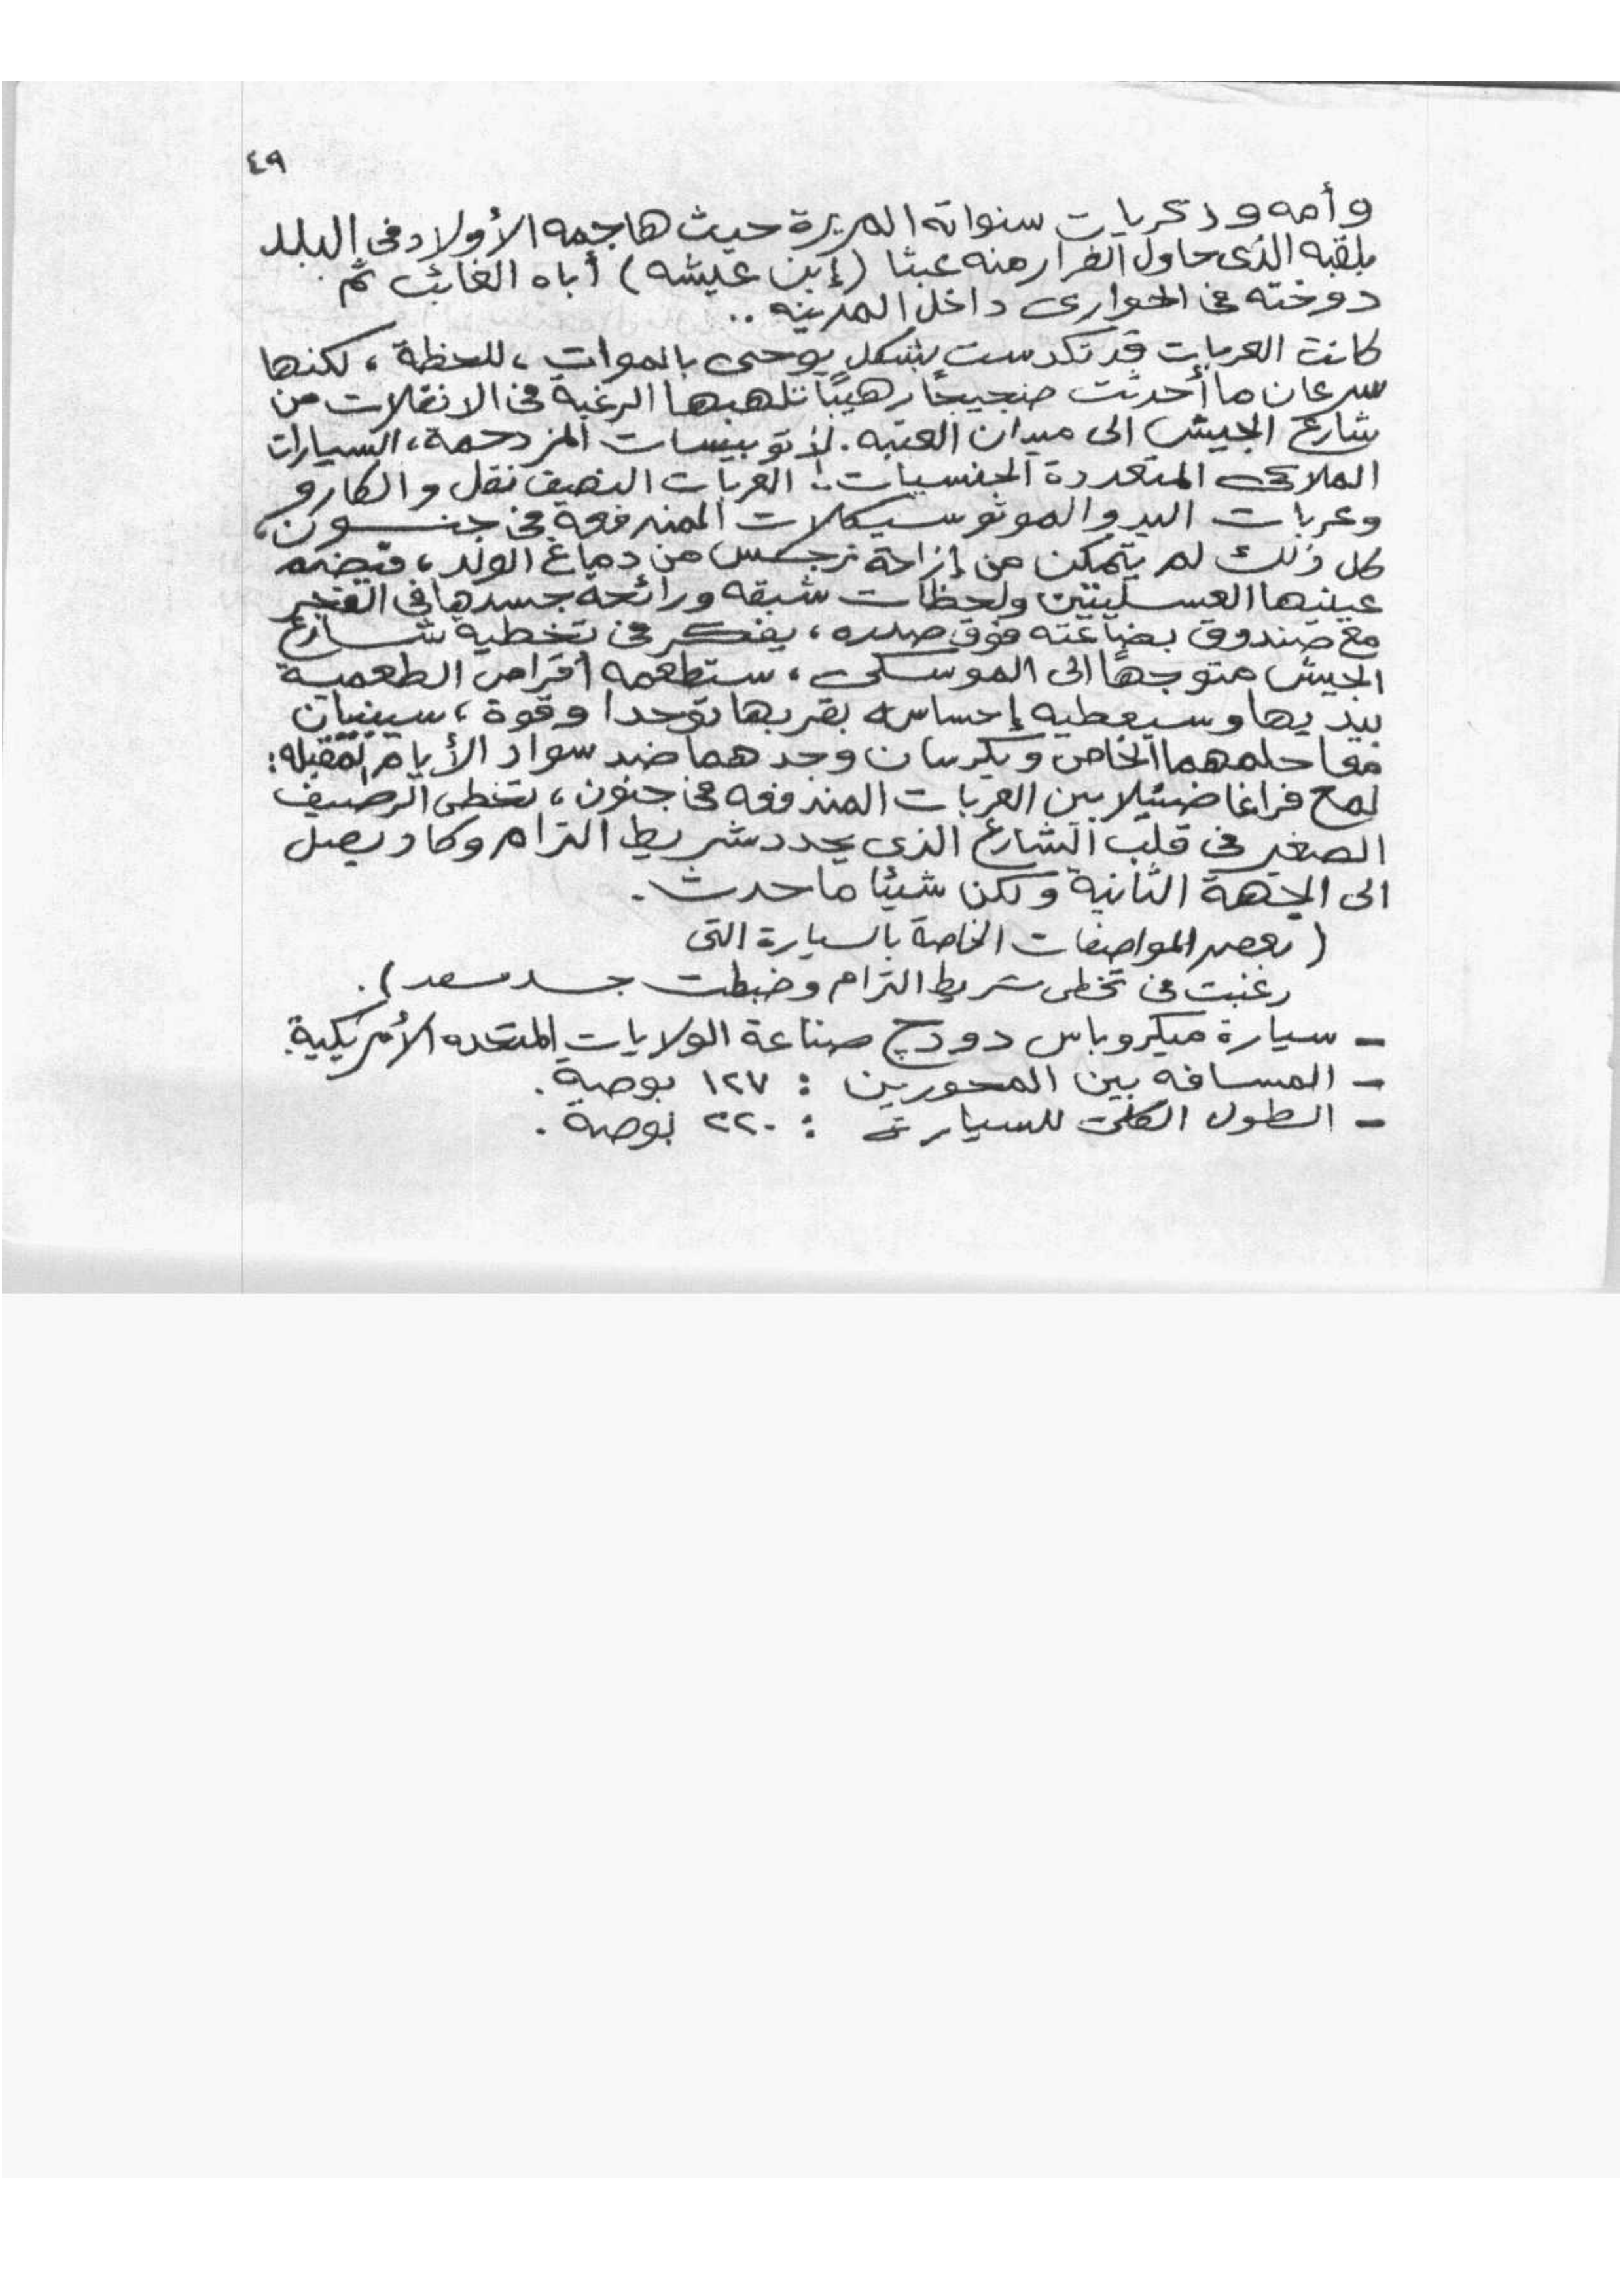 ٤٩
وأمه وذكريات سنواته المريرة حيث هاجمه الأولاد فى البلد
بلقبه الذى حاول الفرار منه عبثا (إبن عيشه) أباه الغائب ثم
دوخته فى الحوارى داخل المدينه ..
كانت العربات قد تكدست بشكل يوحى بالموات ، للحظة ، لكنها
سرعان ما أحدثت ضجيجًا رهيبًا تلهبها الرغبة فى الانفلات من
شارع الجيش الى ميدان العتبه . الأتوبيسات المزدحمة ، السيارات
الملاكى المتعددة الجنسيات .. العربات النصف نقل والكارو
وعربات اليد والموتوسيكلات المندفعة فى جنون ،
كل ذلك لم يتمكن من إزاحة نرجس من دماغ الولد ،
عينيها العسليتين ولحظات شبقه ورائحة جسدها فى الفجر
مع صندوق بضاعته فوق صدره ، يفكر فى تخطية شارع
الجيش متوجهًا الى الموسكى ، ستطعمه أقراص الطعمية
بيديها وسيعطيه إحساسه بقربها توحدا وقوة ، سيبنيان
معا حلمهما الخاص ويكرسان وجدهما ضد سواد الأيام المقبله :
لمح فراغا ضئيلا بين العربات المندفعه فى جنون ، تخطى الرصيف
الصغير فى قلب الشارع الذى يحدد شريط الترام وكاد يصل
الى الجهة الثانية ولكن شيئا ما حدث .
( بعض المواصفات الخاصة بالسيارة التى
رغبت فى تخطى شريط الترام وضبطت جسد مسعد ) .
- سيارة ميكروباس دودج صناعة الولايات المتحده الأمريكية .
- المسافه بين المحورين : ١٢٧ بوصة .
- الطول الكلى للسيارة : ٢٢٠ بوصة .